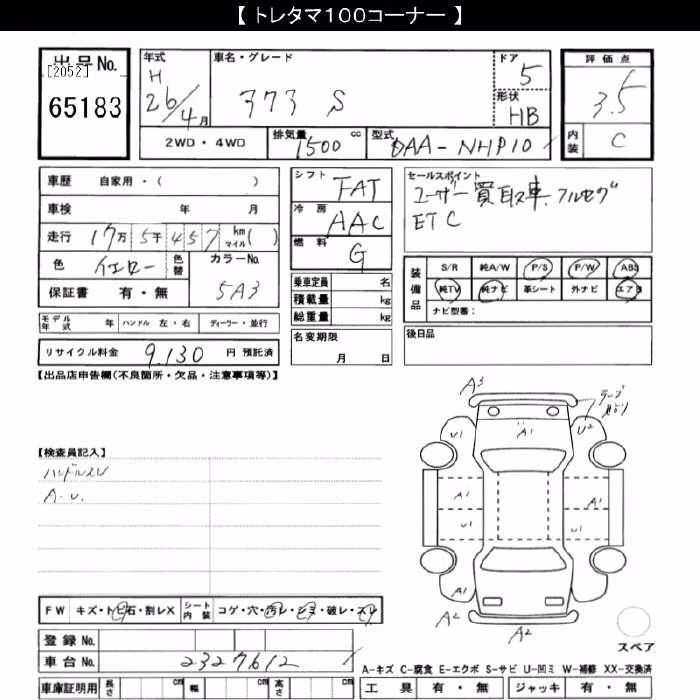 【 トレタマ100コーナー 】
出品No. [2052] 65183
年式 H 26/4月
車名・グレード S
ドア 5
形状 HB
評価点 3.5
内装 C
2WD・4WD
排気量 1500 cc
型式 DAA-NHP10
車歴 自家用・( )
車検 年 月
走行 17万5千457 km マイル( )
色 イエロー 色替
カラーNo. 5A3
保証書 有・無
シフト FAT
冷房 AAC
燃料 G
乗車定員 名
積載量 kg
総重量 kg
名変期限 月 日
セールスポイント
ユーザー買取車、フルセグ
ETC
装備品 S/R 純A/W P/S P/W ABS
純TV 純ナビ 革シート 外ナビ エアB
ナビ型番:
後日品
モデル年式 年 ハンドル 左・右 ディーラー・並行
リサイクル料金 9,130 円 預託済
【出品店申告欄(不良箇所・欠品・注意事項等)】
【検査員記入】
ハンドルスレ
A.U.
A3
テープ貼り
U1
A1
U2
A1
A1
U1
U1
A1
A2
A2
スペア
FW キズ・トビ石・割レX
シート内装 コゲ・穴・汚レ・シミ・破レ・スレ
登録 No.
車台 No. 2327612
A-キズ C-腐食 E-エクボ S-サビ U-凹ミ W-補修 XX-交換済
車庫証明用 長さ cm 幅 cm 高さ cm
工具 有・無 ジャッキ 有・無